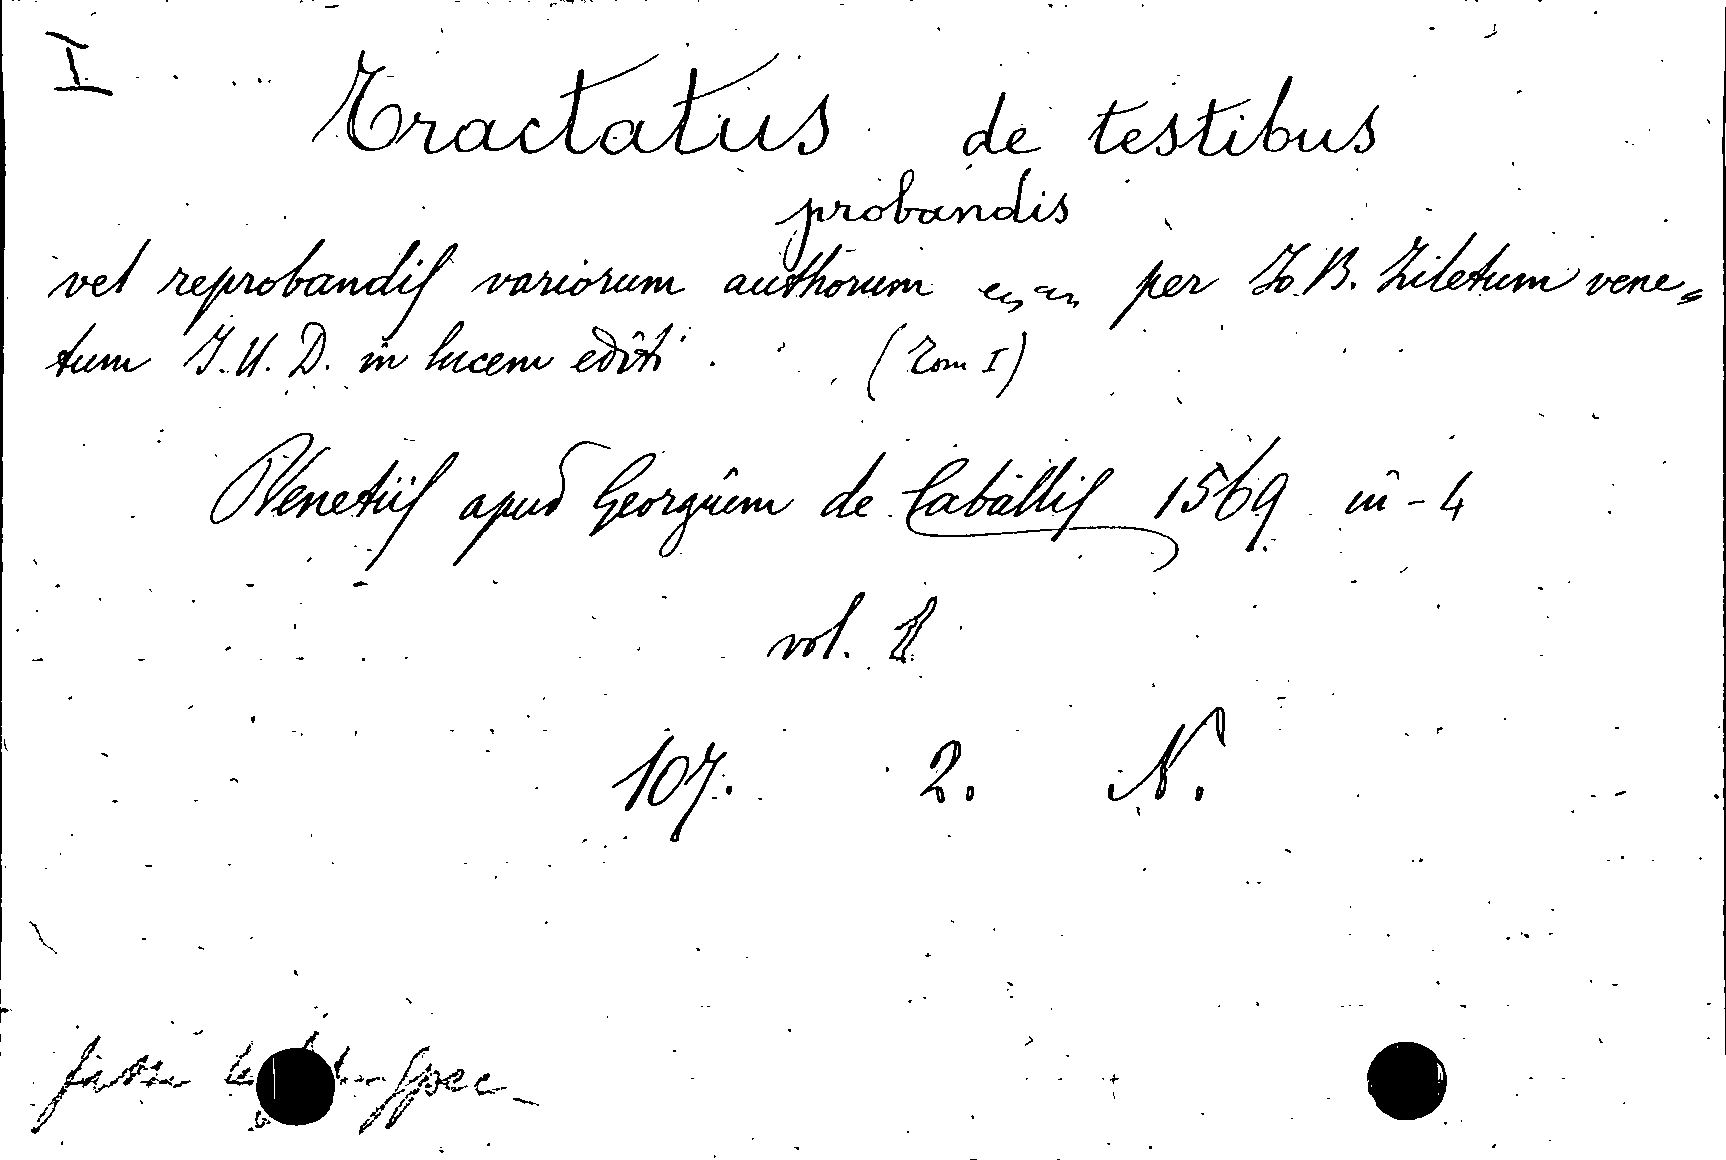 I
Tractatus de testibus
probandis
vel reprobandis variorum authorum per Io. B. Ziletum vene=
tum I. U. D. in lucem editi. (Tom I)
Venetiis apud Georgium de Caballis 1569 in-4
vol. 1
107. 2. N.